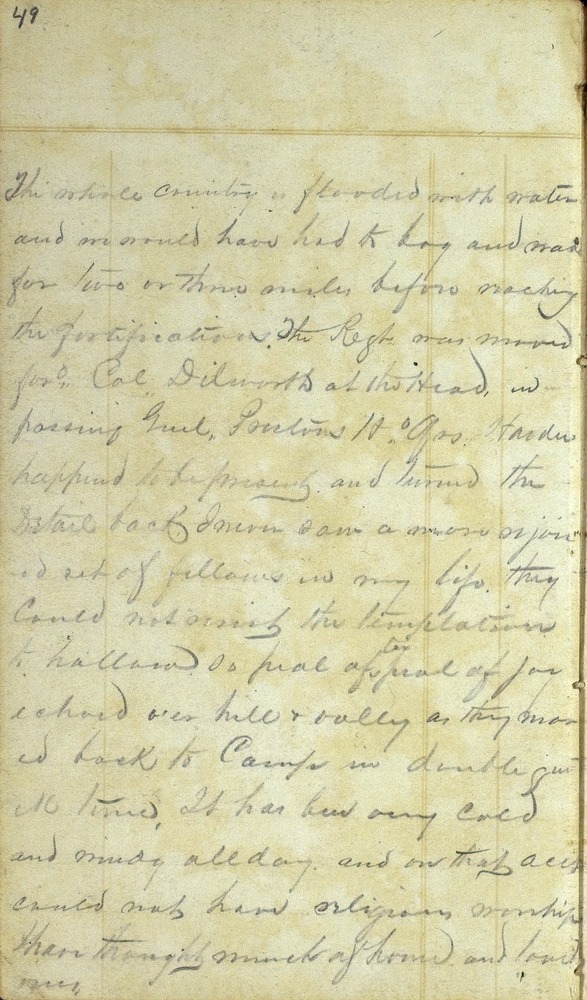 49
The whole country is flooded with water
and we would have had to bog and wade
for two or three miles before reaching
the fortifications. The Regt. was moved
ford. Col Dilworth at the Head, in
passing Genl. Prestons Hd Qrs.
happend to be present and turned the
Detail back. I never saw a more rejoic
ed set of fellows in my life. they
Could not resist the temptation
to hallow. So peal after peal of joy
echoed over hill & valley as they mov
ed back to Camp in double qui
ck time. It has been very Cold
and windy all day. and on that acct
could not have religious worship
I have thought much of home and loved
ones,